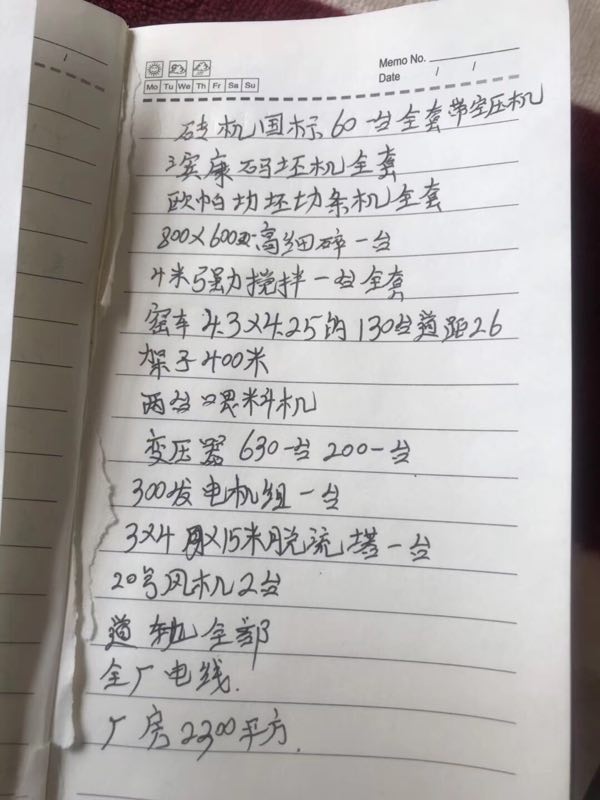 Memo No.
Date / /
Mo Tu We Th Fr Sa Su
砖机国标60一台全套带空压机
宾康码坯机全套
欧帕切坯切条机全套
800×600高细碎一台
4米强力搅拌一台全套
窑车4.3×4.25的130台道距26
架子400米
两台喂料机
变压器630一台200一台
300发电机组一台
3×4×15米脱流塔一台
20号风机2台
道轨全部
全厂电线.
厂房2300平方.